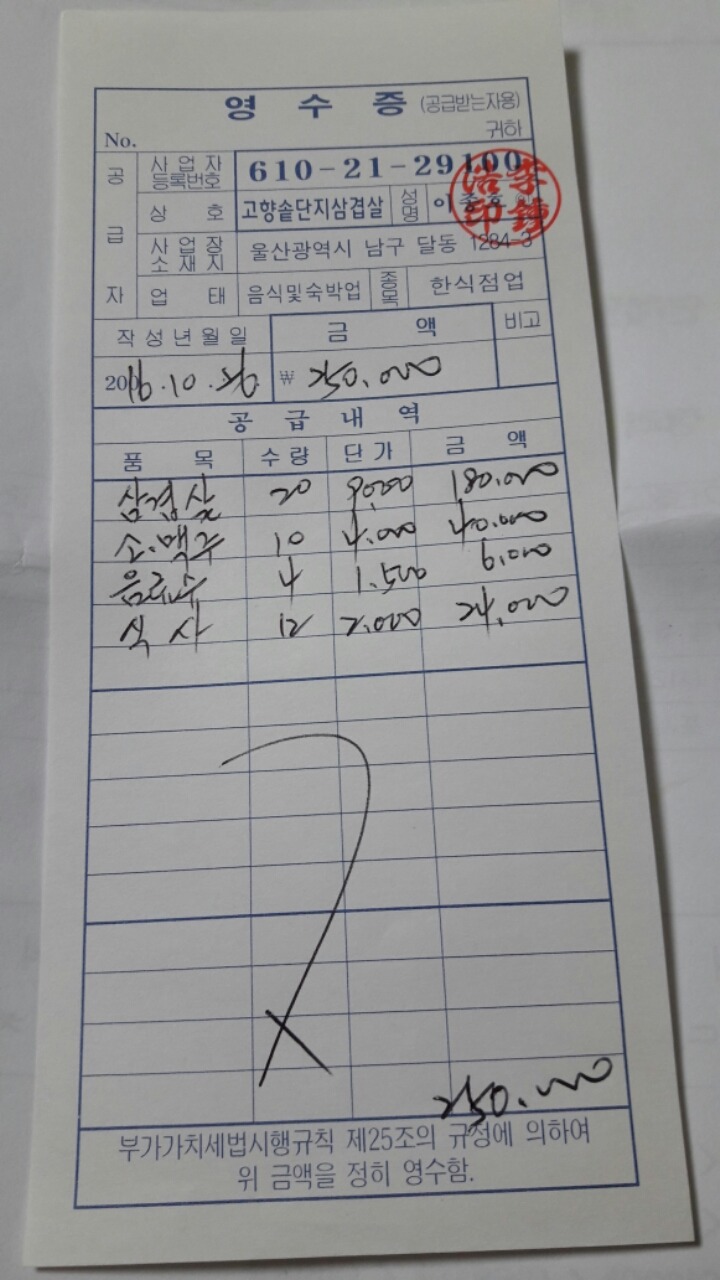 영 수 증 (공급받는자용)
No. 귀하
공급자
사업자등록번호 610-21-29100
상 호 고향솥단지삼겹살 성명 이종호
사업장소재지 울산광역시 남구 달동 1284-3
업 태 음식및숙박업 종목 한식점업
작성년월일 금 액 비고
2016.10. ₩ 250.000
공 급 내 역
품 목 수량 단가 금 액
삼겹살 20 9.000 180.000
소.맥주 10 4.000 40.000
음료수 4 1.500 6.000
식사 12 2.000 24.000
250.000
부가가치세법시행규칙 제25조의 규정에 의하여
위 금액을 정히 영수함.